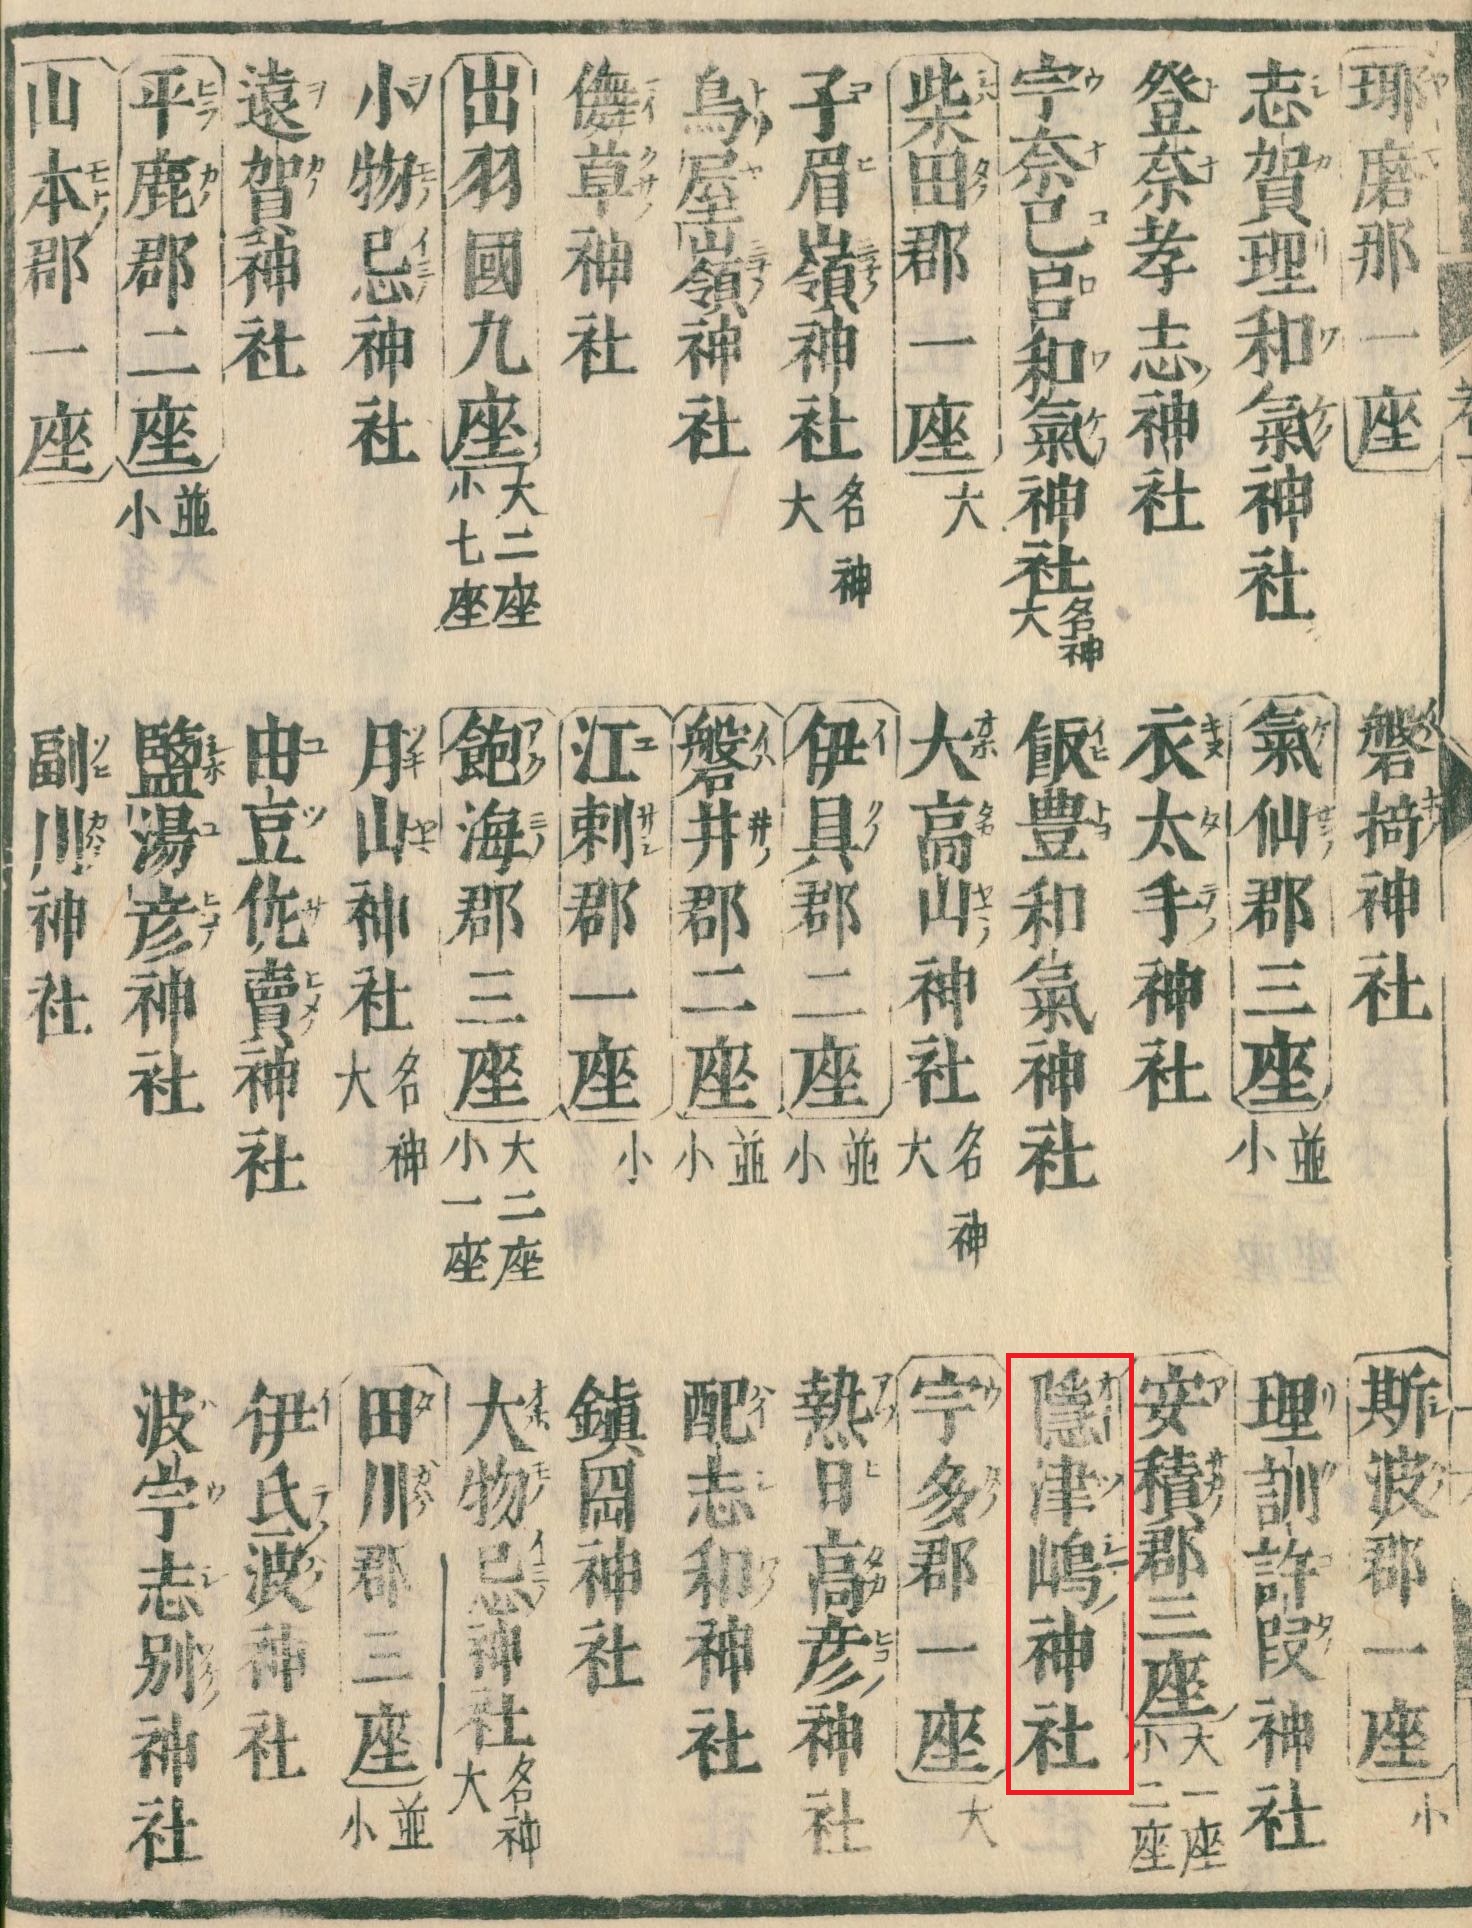 耶磨郡一座
磐椅神社
斯波郡一座 小
志賀理和氣神社
氣仙郡三座 並小
理訓許段神社
登奈孝志神社
衣太手神社
安積郡三座 大一座 小二座
宇奈己呂和氣神社 名神大
飯豊和氣神社
隱津嶋神社
柴田郡一座 大
大高山神社 名神大
宇多郡一座 大
子眉嶺神社 名神大
伊具郡二座 並小
熱日高彦神社
鳥屋嶺神社
磐井郡二座 並小
配志和神社
儛草神社
江刺郡一座 小
鎮岡神社
出羽國九座 大二座 小七座
飽海郡三座 大二座 小一座
大物忌神社 名神大
小物忌神社
月山神社 名神大
田川郡三座 並小
遠賀神社
由豆佐賣神社
伊氐波神社
平鹿郡二座 並小
鹽湯彦神社
波宇志別神社
山本郡一座
副川神社